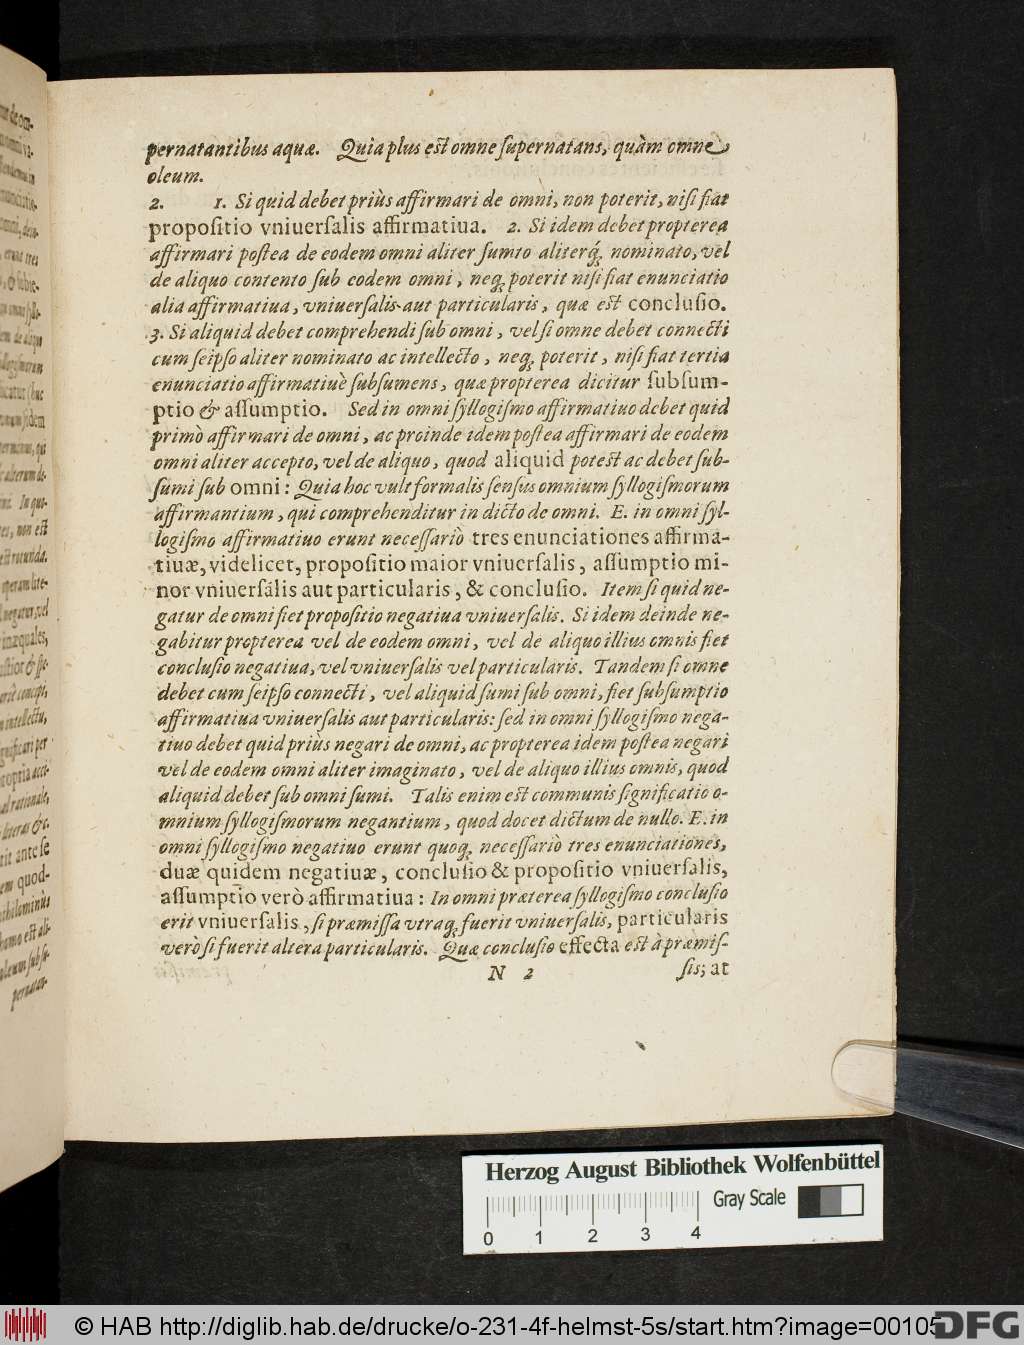 pernatantibus aquæ. Quia plus est omne ſupernatans, quàm omne
oleum.
2. 1. Si quid debet priùs affirmari de omni, non poterit, niſi fiat
propoſitio vniuerſalis affirmatiua. 2. Si idem debet propterea
affirmari poſtea de eodem omni aliter ſumto aliterq́; nominato, vel
de aliquo contento ſub eodem omni, neq; poterit niſi fiat enunciatio
alia affirmatiua, vniuerſalis aut particularis, quæ est concluſio.
3. Si aliquid debet comprehendi ſub omni, vel ſi omne debet connecti
cum ſeipſo aliter nominato ac intellecto, neq; poterit, niſi fiat tertia
enunciatio affirmatiuè ſubſumens, quæ propterea dicitur ſubſum-
ptio & aſſumptio. Sed in omni ſyllogiſmo affirmatiuo debet quid
primò affirmari de omni, ac proinde idem poſtea affirmari de eodem
omni aliter accepto, vel de aliquo, quod aliquid potest ac debet ſub-
ſumi ſub omni: Quia hoc vult formalis ſenſus omnium ſyllogiſmorum
affirmantium, qui comprehenditur in dicto de omni. E. in omni ſyl-
logiſmo affirmatiuo erunt neceſſariò tres enunciationes affirma-
tiuæ, videlicet, propoſitio maior vniuerſalis, aſſumptio mi-
nor vniuerſalis aut particularis, & concluſio. Item ſi quid ne-
gatur de omni fiet propoſitio negatiua vniuerſalis. Si idem deinde ne-
gabitur propterea vel de eodem omni, vel de aliquo illius omnis fiet
concluſio negatiua, vel vniuerſalis vel particularis. Tandem ſi omne
debet cum ſeipſo connecti, vel aliquid ſumi ſub omni, fiet ſubſumptio
affirmatiua vniuerſalis aut particularis: ſed in omni ſyllogiſmo nega-
tiuo debet quid priùs negari de omni, ac propterea idem poſtea negari
vel de eodem omni aliter imaginato, vel de aliquo illius omnis, quod
aliquid debet ſub omni ſumi. Talis enim est communis ſignificatio o-
mnium ſyllogiſmorum negantium, quod docet dictum de nullo. E. in
omni ſyllogiſmo negatiuo erunt quoq; neceſſariò tres enunciationes,
duæ quidem negatiuæ, concluſio & propoſitio vniuerſalis,
aſſumptio verò affirmatiua: In omni præterea ſyllogiſmo concluſio
erit vniuerſalis, ſi præmiſſa vtraq; fuerit vniuerſalis, particularis
verò ſi fuerit altera particularis. Quæ concluſio effecta est à præmiſ-
N 2 ſis; at
Herzog August Bibliothek Wolfenbüttel
Gray Scale
0 1 2 3 4
© HAB http://diglib.hab.de/drucke/o-231-4f-helmst-5s/start.htm?image=00105
DFG